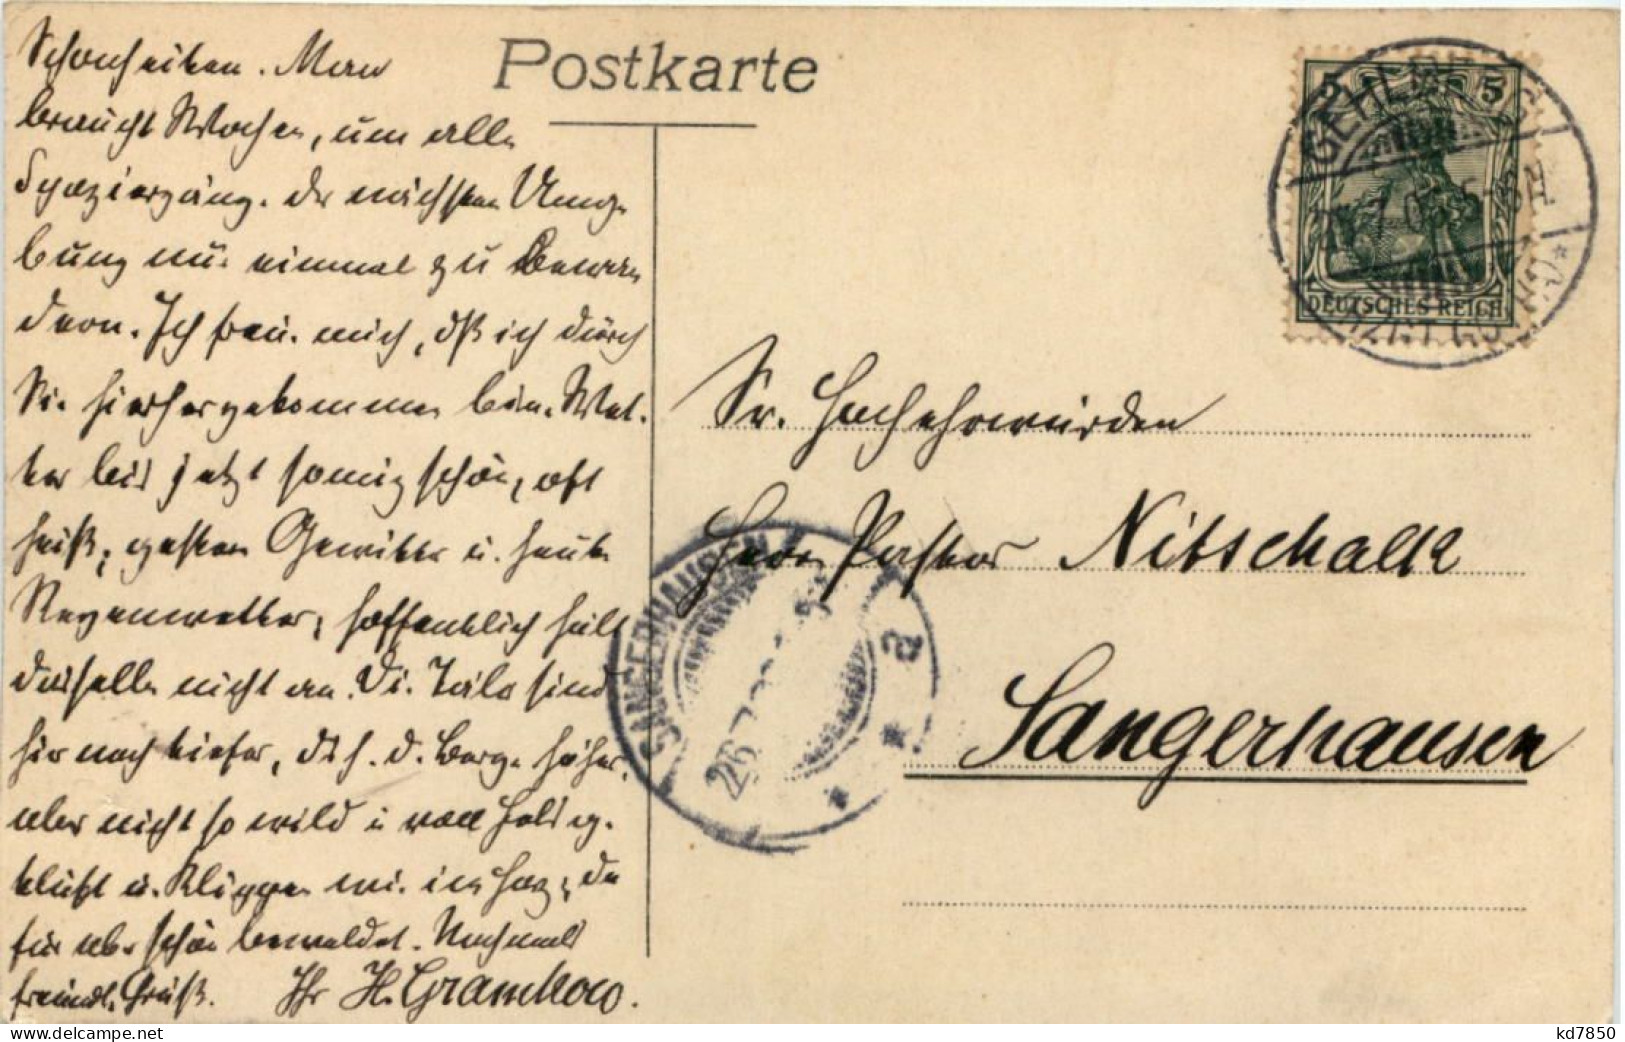 Postkarte
Schönheiten. Man
braucht Wochen, um alle
Spaziergänge der nächsten Umge
bung nur einmal zu bewun
dern. Ich freue mich, dß ich durch
Sie hierhergekommen bin. Wet-
ter bis jetzt sonnig schön, oft
heiß, gestern Gewitter u. heute
Regenwetter, hoffentlich hält
dasselbe nicht an. Die Täler sind
hier noch tiefer, d. h. d. Berge höher,
aber nicht so wild u. voll Felsge-
klüft u. Klippen wie im Harz, da
für aber schön bewaldet. Nochmals
freundl. Gruß. Ihr H. Gramkow.
5 5
DEUTSCHES REICH
GEHLBERG
Sr. Hochehrwürden
Herrn Pastor Nitschalk
Sangerhausen
SANGERHAUSEN
26 7
a
kd7850